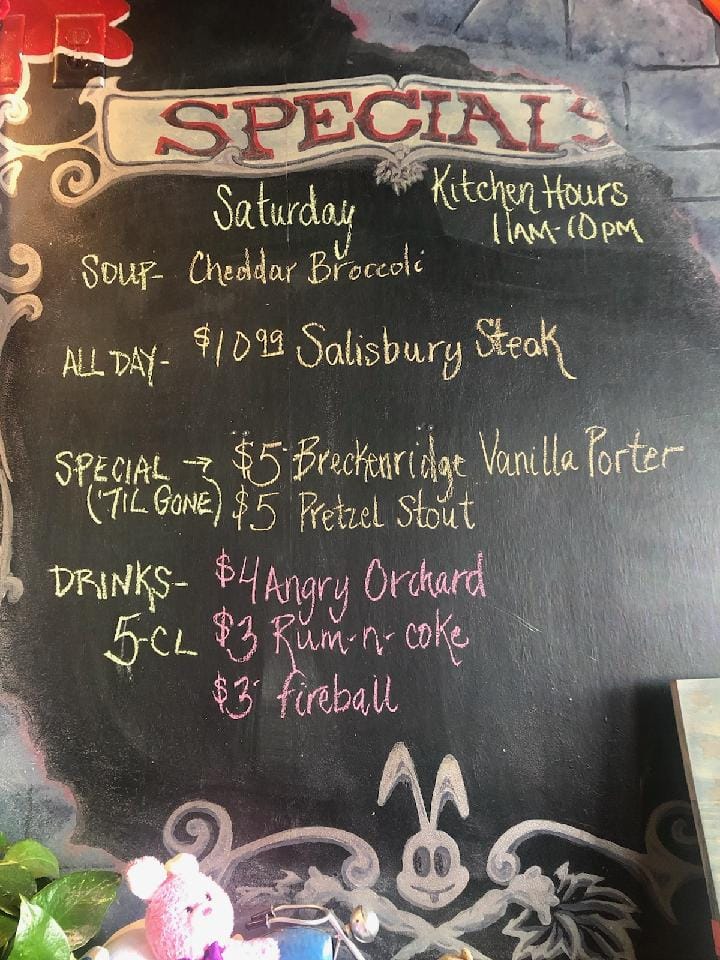 SPECIALS
Saturday
Kitchen Hours
11AM-10PM
SOUP- Cheddar Broccoli
ALL DAY- $10.99 Salisbury Steak
SPECIAL → $5 Breckenridge Vanilla Porter
('TIL GONE) $5 Pretzel Stout
DRINKS- $4 Angry Orchard
5-CL $3 Rum-n-coke
$3 fireball